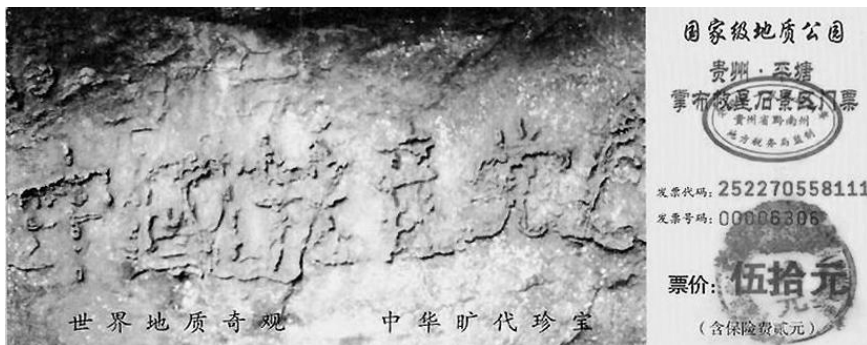 中國共产党亡
世界地质奇观
中华旷代珍宝
国家级地质公园
贵州·平塘
掌布救星石景区门票
贵州省黔南州
地方税务局监制
发票代码：252270558111
发票号码：00006306
票价：伍拾元
（含保险费贰元）